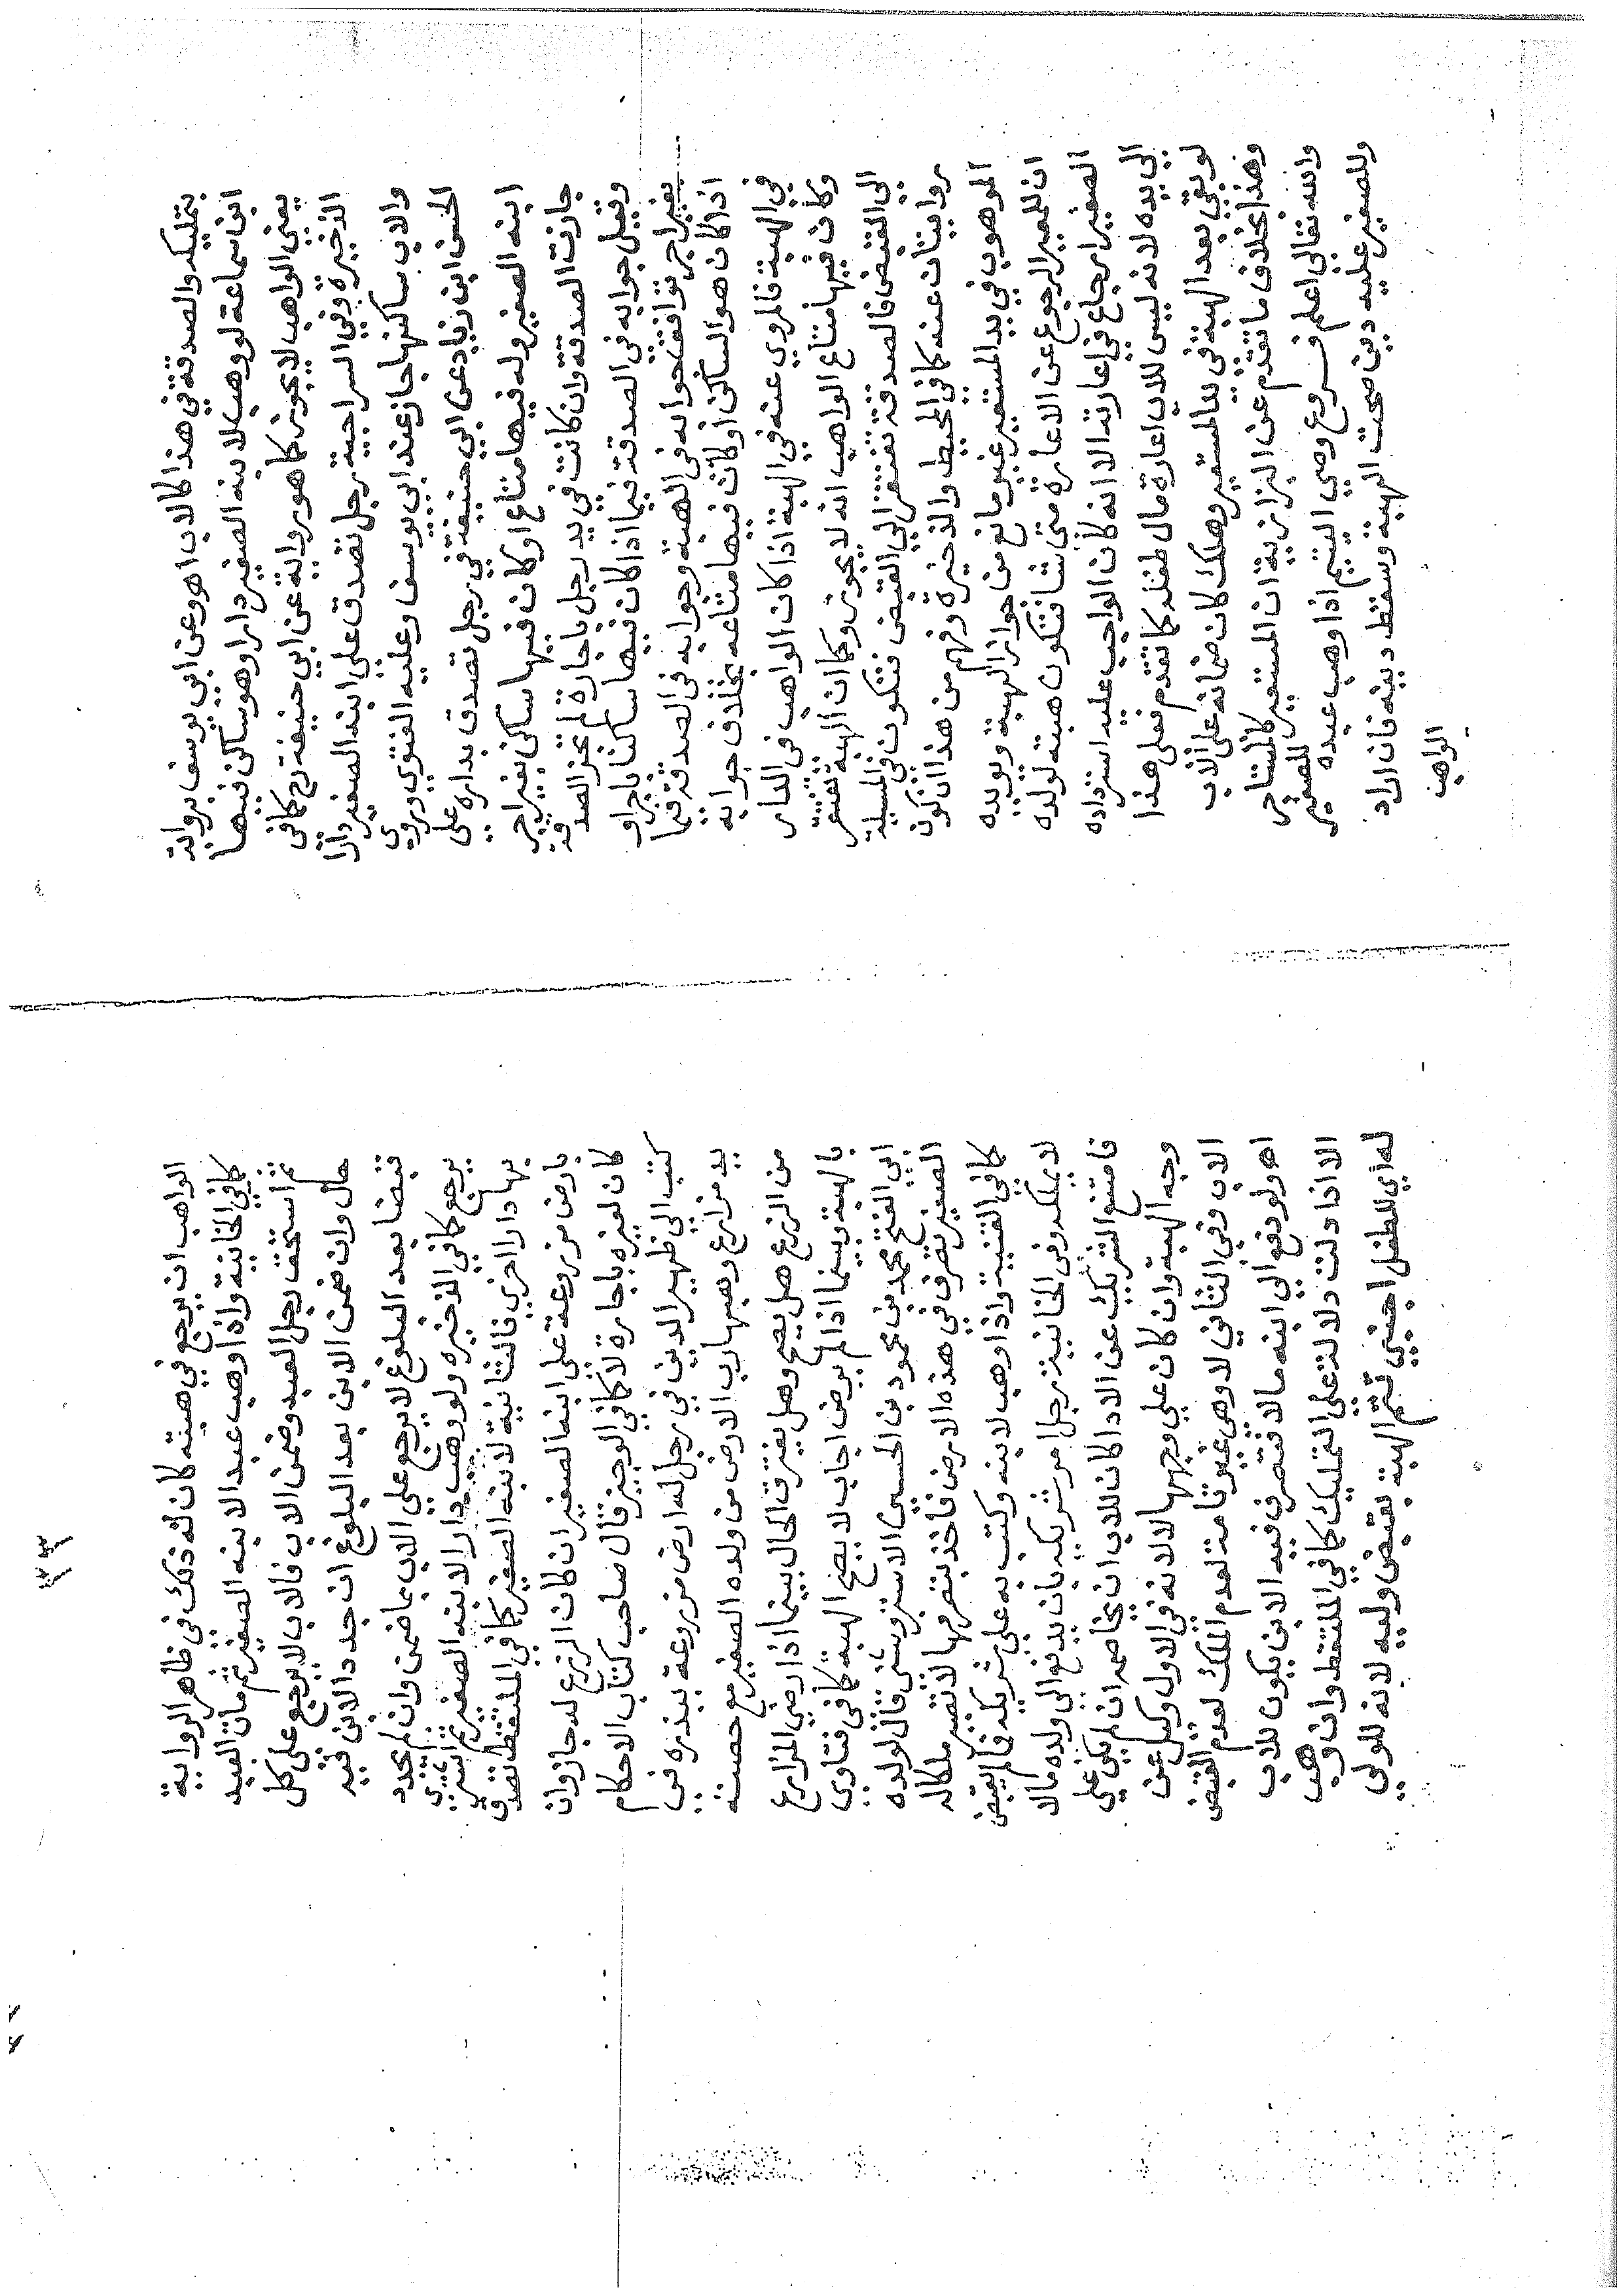 بتمليكه والصدقة في هذا كالاب اهـ وعن ابي يوسف برواية
ابن سماعة لو وهب لابنه الصغير دارا وهو ساكن فيها
يعني الواهب لا يجوز كما هو رواية عن ابي حنيفة رح كما في
الذخيرة وفي السراجية رجل تصدق علي ابنه الصغير دارا
والاب ساكنها جاز عند ابي يوسف وعليه الفتوي وروي
الحسن ابن زياد عن ابي حنيفة في رجل تصدق بداره علي
ابنه الصغير وله فيها متاع او كان فيها ساكن بغير اجر
جازت الصدقة وان كانت في يد رجل باجارة لم تجز الصدقة
وقيل جوابه في الصدقة فيما اذا كان فيها ساكنا باجر او
بغير اجر توافق جوابه في الهبة وجوابه في الصدقة فيما
اذا كان هو الساكن او كان فيها متاعه بخلاف جوابه
في الهبة فالمروي عنه في الهبة اذا كان الواهب في الدار
وكان فيها متاع الواهب انه لا يجوز وكما ان الهبة تفتقر
الي القبض فالصدقة تفتقر الي القبض فتكون في المسيلة
روايتان عنه كما في المحيط والذخيرة وفهم من هذا ان كون
الموهوب في يد المستعير غير مانع من جواز الهبة ويويده
ان للمعير الرجوع عن الاعارة متي شا فتكون هبته لولده
الصغير ارجاع في اعارته الا انه كان الواجب عليه استرداده
الي يده لانه ليس للاب اعارة مال طفله كما تقدم فعلي هذا
لو بقي بعد الهبة في يد المستعير وهلك كان ضمانه علي الاب
وهذا بخلاف ما تقدم عن البزازية ان المستعير كالمستاجر
والله تعالي اعلم فروع وصي اليتيم اذا وهب عبده للصغير
وللصغير عليه دين صحت الهبة وسقط دينه فان اراد
الواهب
الواهب ان يرجع في هبته كان له ذلك في ظاهر الرواية
كما في الخانية واذا وهب عبدا لابنه الصغير ثم مات العبد
ثم استحقه رجل العبد وضمن الاب فالاب لا يرجع علي كل
حال وان ضمن الابن بعد البلوغ ان جدد الابن فيه
قبضا بعد البلوغ لا يرجع علي الاب بما ضمن وان لم يجدد
يرجع كما في الذخيره ولو وهب دارا لابنه الصغير ثم اشتري
بها دارا اخري فالثانية لابنه الصغير كما في الملتقط تصدق
بارض مزروعة علي ابنه الصغير ان كان الزرع له جاز وان
كان لغيره باجارة لا كما في الوجيز قال صاحب كتاب الاحكام
كتب الي ظهير الدين في رجل له ارض مزروعة ببذره في
يد مزارع وهبها رب الارض من ولده الصغير مع حصته
من الزرع هل يصح وهل يفترق الحال بينما اذا رضي المزارع
بالهبة وبينما اذا لم يرض اجاب لا يصح الهبة كما في فتاوي
ابي الفتح محمد بن محمود بن الحسين الاستروشني قال لولده
الصغير تصرف في هذه الارض فاخذ يتصرفها لا تصير ملكا له
كما في القنية واذا وهب لابنه وكتب به علي شريكه فما لم يقبض
لا يملكه وفي الخانية رجل امر شريكه بان يدفع الي ولده مالا
فامتنع الشريك عن الادا كان للاب ان يخاصمه ان لم يكن علي
وجه الهبة وان كان علي وجهها لا لانه في الاول وكيل عن
الاب وفي الثاني لا وهي غير تامة لعدم الملك لعدم القبض
اهـ ولو دفع الي ابنه مالا فتصرف فيه الابن يكون للاب
الا اذا دلت دلالة علي التمليك كما في الملتقط وان وهب
له اي للطفل اجنبي تتم الهبة بقبض وليه لانه للولي